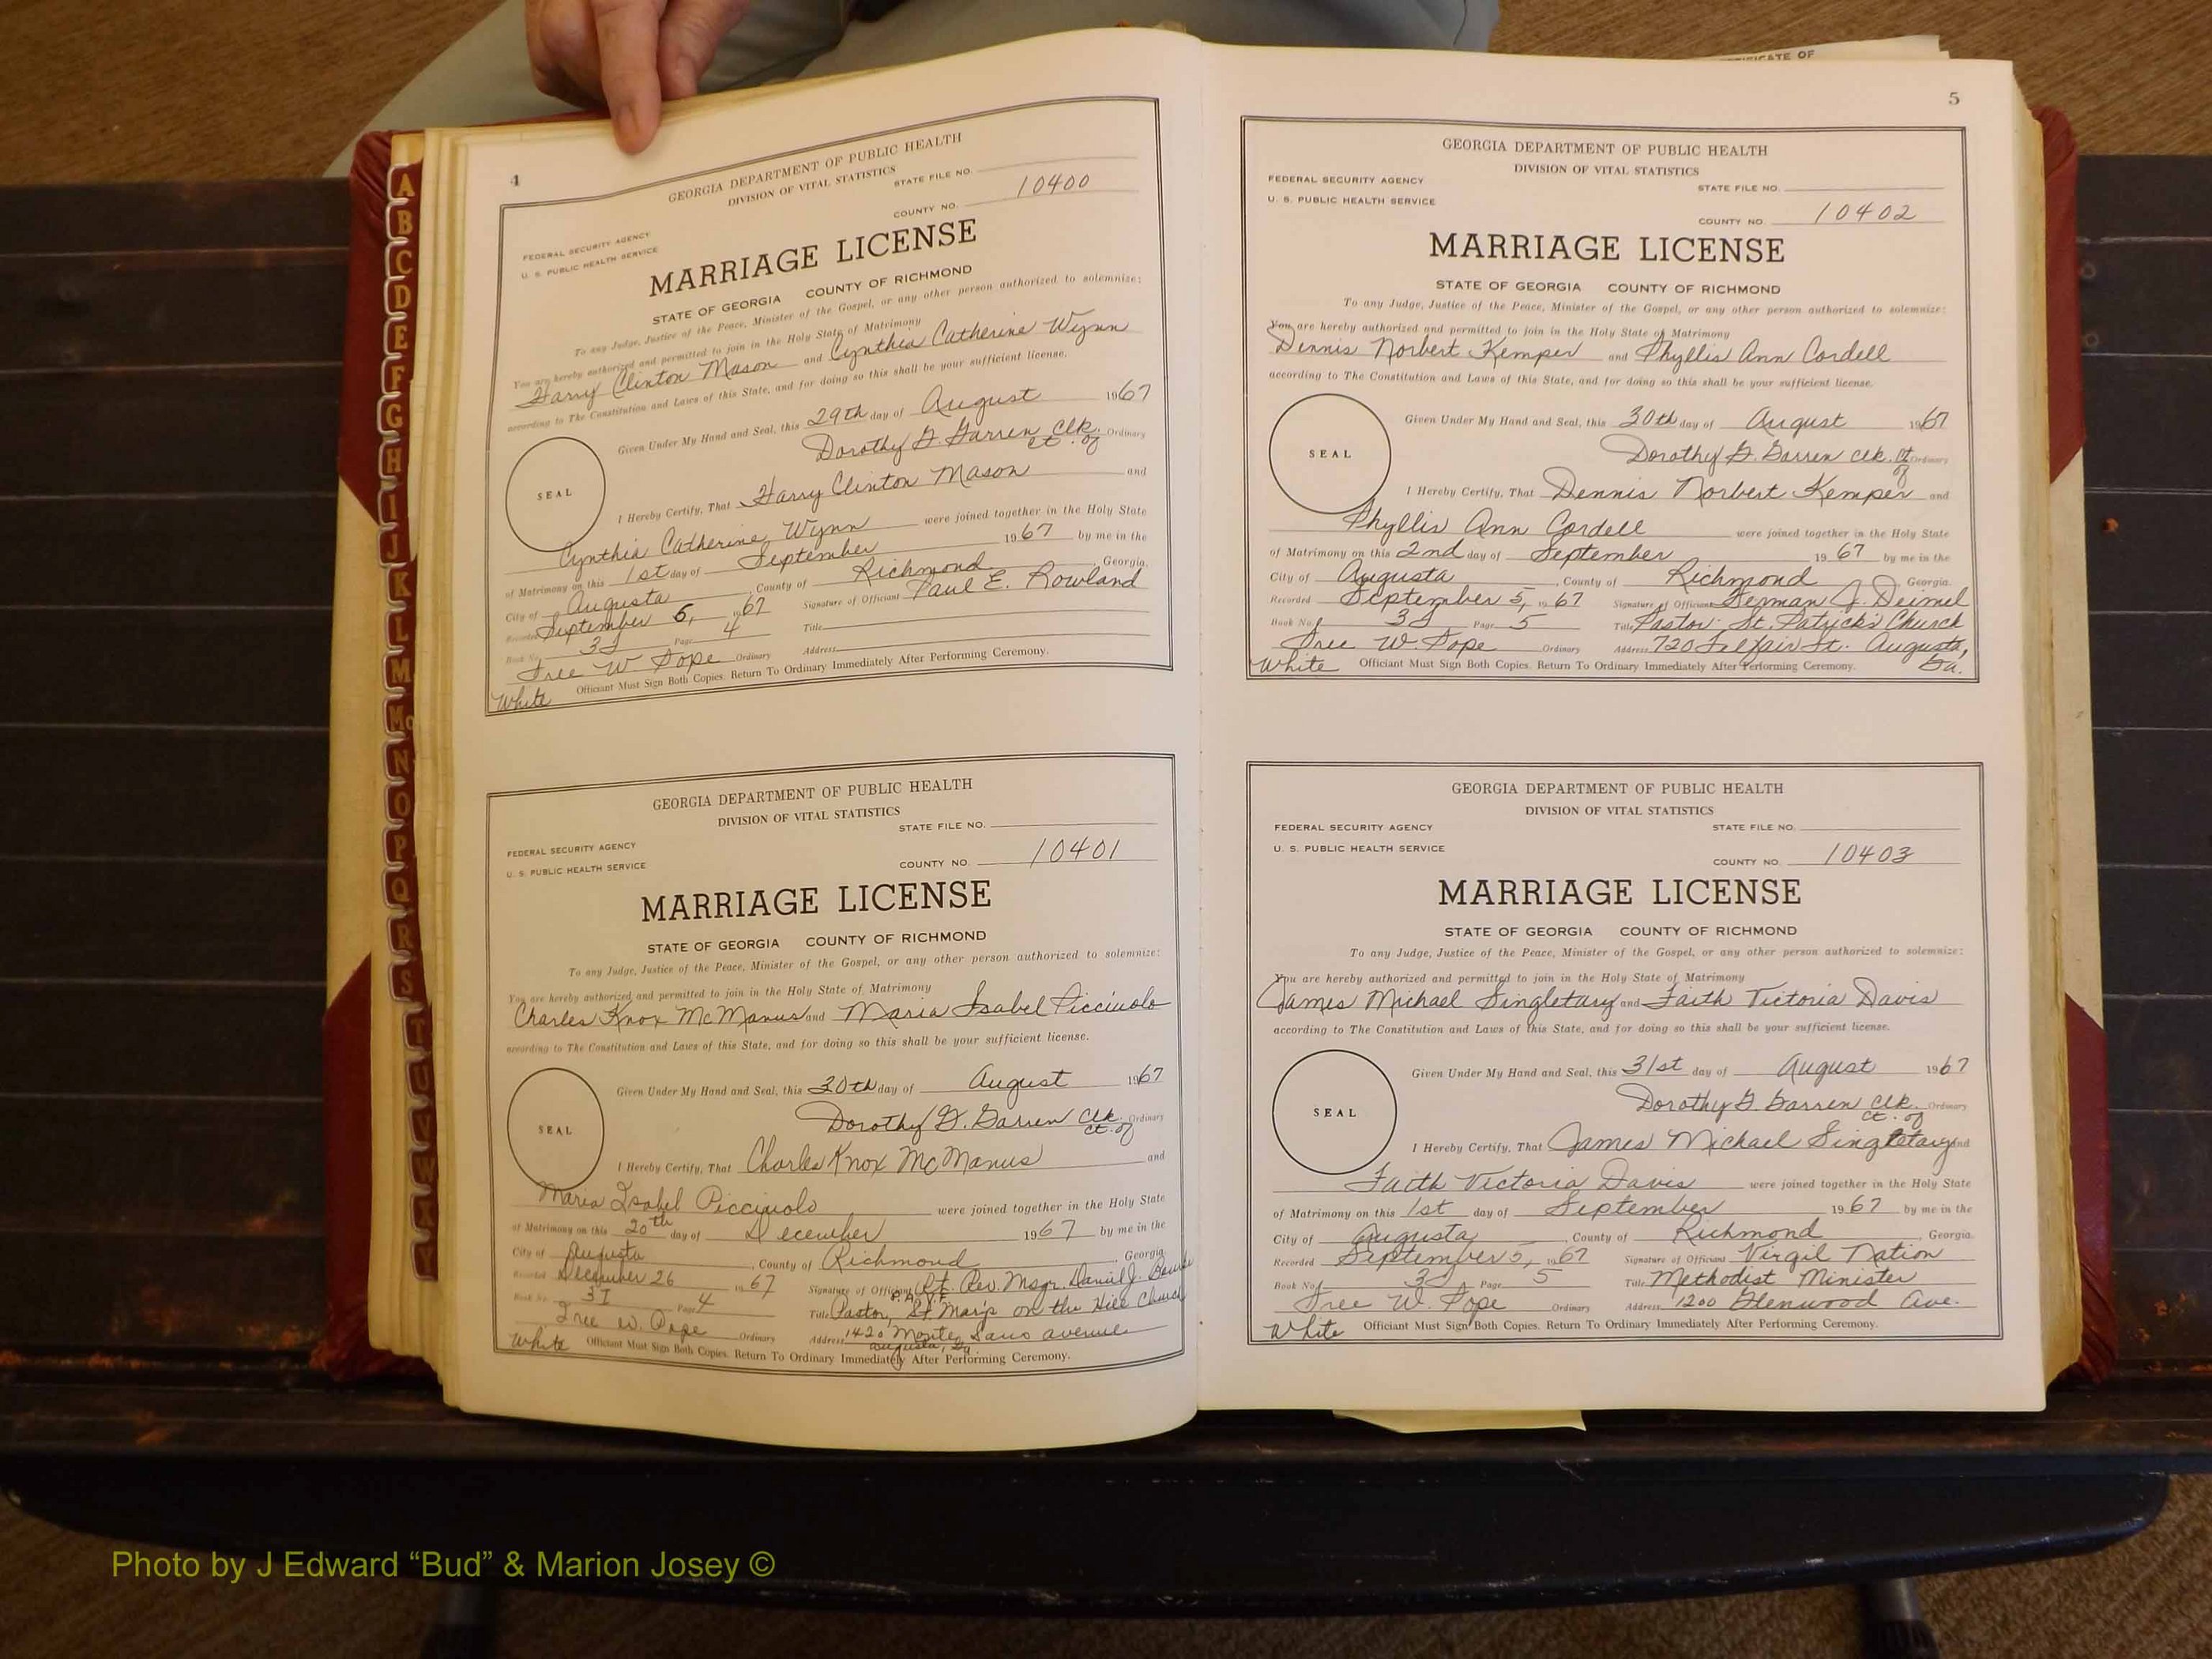 CERTIFICATE OF
4
GEORGIA DEPARTMENT OF PUBLIC HEALTH
DIVISION OF VITAL STATISTICS
STATE FILE NO.
COUNTY NO. 10400
FEDERAL SECURITY AGENCY
U. S. PUBLIC HEALTH SERVICE
MARRIAGE LICENSE
STATE OF GEORGIA COUNTY OF RICHMOND
To any Judge, Justice of the Peace, Minister of the Gospel, or any other person authorized to solemnize:
You are hereby authorized and permitted to join in the Holy State of Matrimony
Harry Clinton Mason and Cynthia Catherine Wynn
according to The Constitution and Laws of this State, and for doing so this shall be your sufficient license.
Given Under My Hand and Seal, this 29th day of August 1967
Dorothy G. Garren Clk. Ordinary
ct. of
SEAL
I Hereby Certify, That Harry Clinton Mason and
Cynthia Catherine Wynn were joined together in the Holy State
of Matrimony on this 1st day of September 1967 by me in the
City of Augusta, County of Richmond, Georgia.
Recorded September 5, 1967 Signature of Officiant Paul E. Rowland
Book No. 3I Page 4 Title
Free W. Pope Ordinary Address
White Officiant Must Sign Both Copies. Return To Ordinary Immediately After Performing Ceremony.
GEORGIA DEPARTMENT OF PUBLIC HEALTH
DIVISION OF VITAL STATISTICS
STATE FILE NO.
FEDERAL SECURITY AGENCY
U. S. PUBLIC HEALTH SERVICE
COUNTY NO. 10401
MARRIAGE LICENSE
STATE OF GEORGIA COUNTY OF RICHMOND
To any Judge, Justice of the Peace, Minister of the Gospel, or any other person authorized to solemnize:
You are hereby authorized and permitted to join in the Holy State of Matrimony
Charles Knox McManus and Maria Isabel Picciuolo
according to The Constitution and Laws of this State, and for doing so this shall be your sufficient license.
Given Under My Hand and Seal, this 30th day of August 1967
Dorothy G. Garren Clk. Ordinary
ct. of
SEAL
I Hereby Certify, That Charles Knox McManus and
Maria Isabel Picciuolo were joined together in the Holy State
of Matrimony on this 20th day of December 1967 by me in the
City of Augusta, County of Richmond, Georgia.
Recorded December 26 1967 Signature of Officiant Rt. Rev. Msgr. Daniel J. Bourke
P.A. V.F.
Book No. 3I Page 4 Title Pastor, St. Mary's on the Hill Church
Free W. Pope Ordinary Address 1420 Monte Sano avenue
Augusta, Ga.
White Officiant Must Sign Both Copies. Return To Ordinary Immediately After Performing Ceremony.
5
GEORGIA DEPARTMENT OF PUBLIC HEALTH
DIVISION OF VITAL STATISTICS
FEDERAL SECURITY AGENCY
STATE FILE NO.
U. S. PUBLIC HEALTH SERVICE
COUNTY NO. 10402
MARRIAGE LICENSE
STATE OF GEORGIA COUNTY OF RICHMOND
To any Judge, Justice of the Peace, Minister of the Gospel, or any other person authorized to solemnize:
You are hereby authorized and permitted to join in the Holy State of Matrimony
Dennis Norbert Kemper and Phyllis Ann Cordell
according to The Constitution and Laws of this State, and for doing so this shall be your sufficient license.
Given Under My Hand and Seal, this 30th day of August 1967
Dorothy G. Garren Clk. Ct. Ordinary
of
SEAL
I Hereby Certify, That Dennis Norbert Kemper and
Phyllis Ann Cordell were joined together in the Holy State
of Matrimony on this 2nd day of September 1967 by me in the
City of Augusta, County of Richmond, Georgia.
Recorded September 5, 1967 Signature of Officiant Herman J. Deimel
Book No. 3I Page 5 Title Pastor St. Patrick's Church
Free W. Pope Ordinary Address 720 Telfair St. Augusta,
Ga.
White Officiant Must Sign Both Copies. Return To Ordinary Immediately After Performing Ceremony.
GEORGIA DEPARTMENT OF PUBLIC HEALTH
DIVISION OF VITAL STATISTICS
FEDERAL SECURITY AGENCY
STATE FILE NO.
U. S. PUBLIC HEALTH SERVICE
COUNTY NO. 10403
MARRIAGE LICENSE
STATE OF GEORGIA COUNTY OF RICHMOND
To any Judge, Justice of the Peace, Minister of the Gospel, or any other person authorized to solemnize:
You are hereby authorized and permitted to join in the Holy State of Matrimony
James Michael Singletary and Faith Victoria Davis
according to The Constitution and Laws of this State, and for doing so this shall be your sufficient license.
Given Under My Hand and Seal, this 31st day of August 1967
Dorothy G. Garren Clk. Ordinary
ct. of
SEAL
I Hereby Certify, That James Michael Singletary and
Faith Victoria Davis were joined together in the Holy State
of Matrimony on this 1st day of September 1967 by me in the
City of Augusta, County of Richmond, Georgia.
Recorded September 5, 1967 Signature of Officiant Virgil Nation
Book No. 3I Page 5 Title Methodist Minister
Free W. Pope Ordinary Address 1200 Glenwood Ave.
White Officiant Must Sign Both Copies. Return To Ordinary Immediately After Performing Ceremony.
A
B
C
D
E
F
G
H
I
J
K
L
M
Mc
N
O
P
Q
R
S
T
U
V
W
X
Y
Photo by J Edward “Bud” & Marion Josey ©